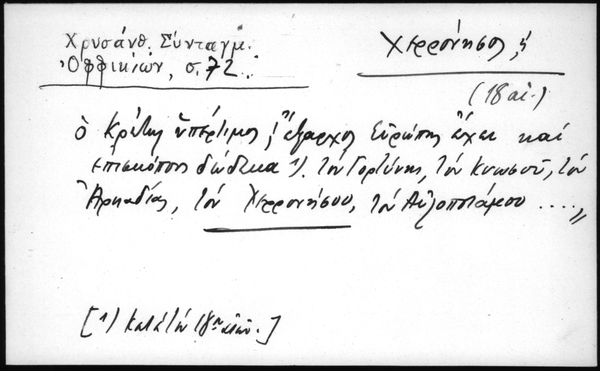 Χρυσάνθ. Σύνταγμ.
Ὀφφικίων, σ. 72.
Χερρόνησος, ἡ
(18 αἰ.)
ὁ Κρήτης ὑπέρτιμος, ἔξαρχος Εὐρώπης ἔχει καὶ
ἐπισκόπους δώδεκα ¹). τὸν Γορτύνης, τὸν Κνωσοῦ, τὸν
Ἀρκαδίας, τὸν Χερρονήσου, τὸν Αὐλοποτάμου ....,,
[¹) κατὰ τὸν 18ον αἰῶν.]